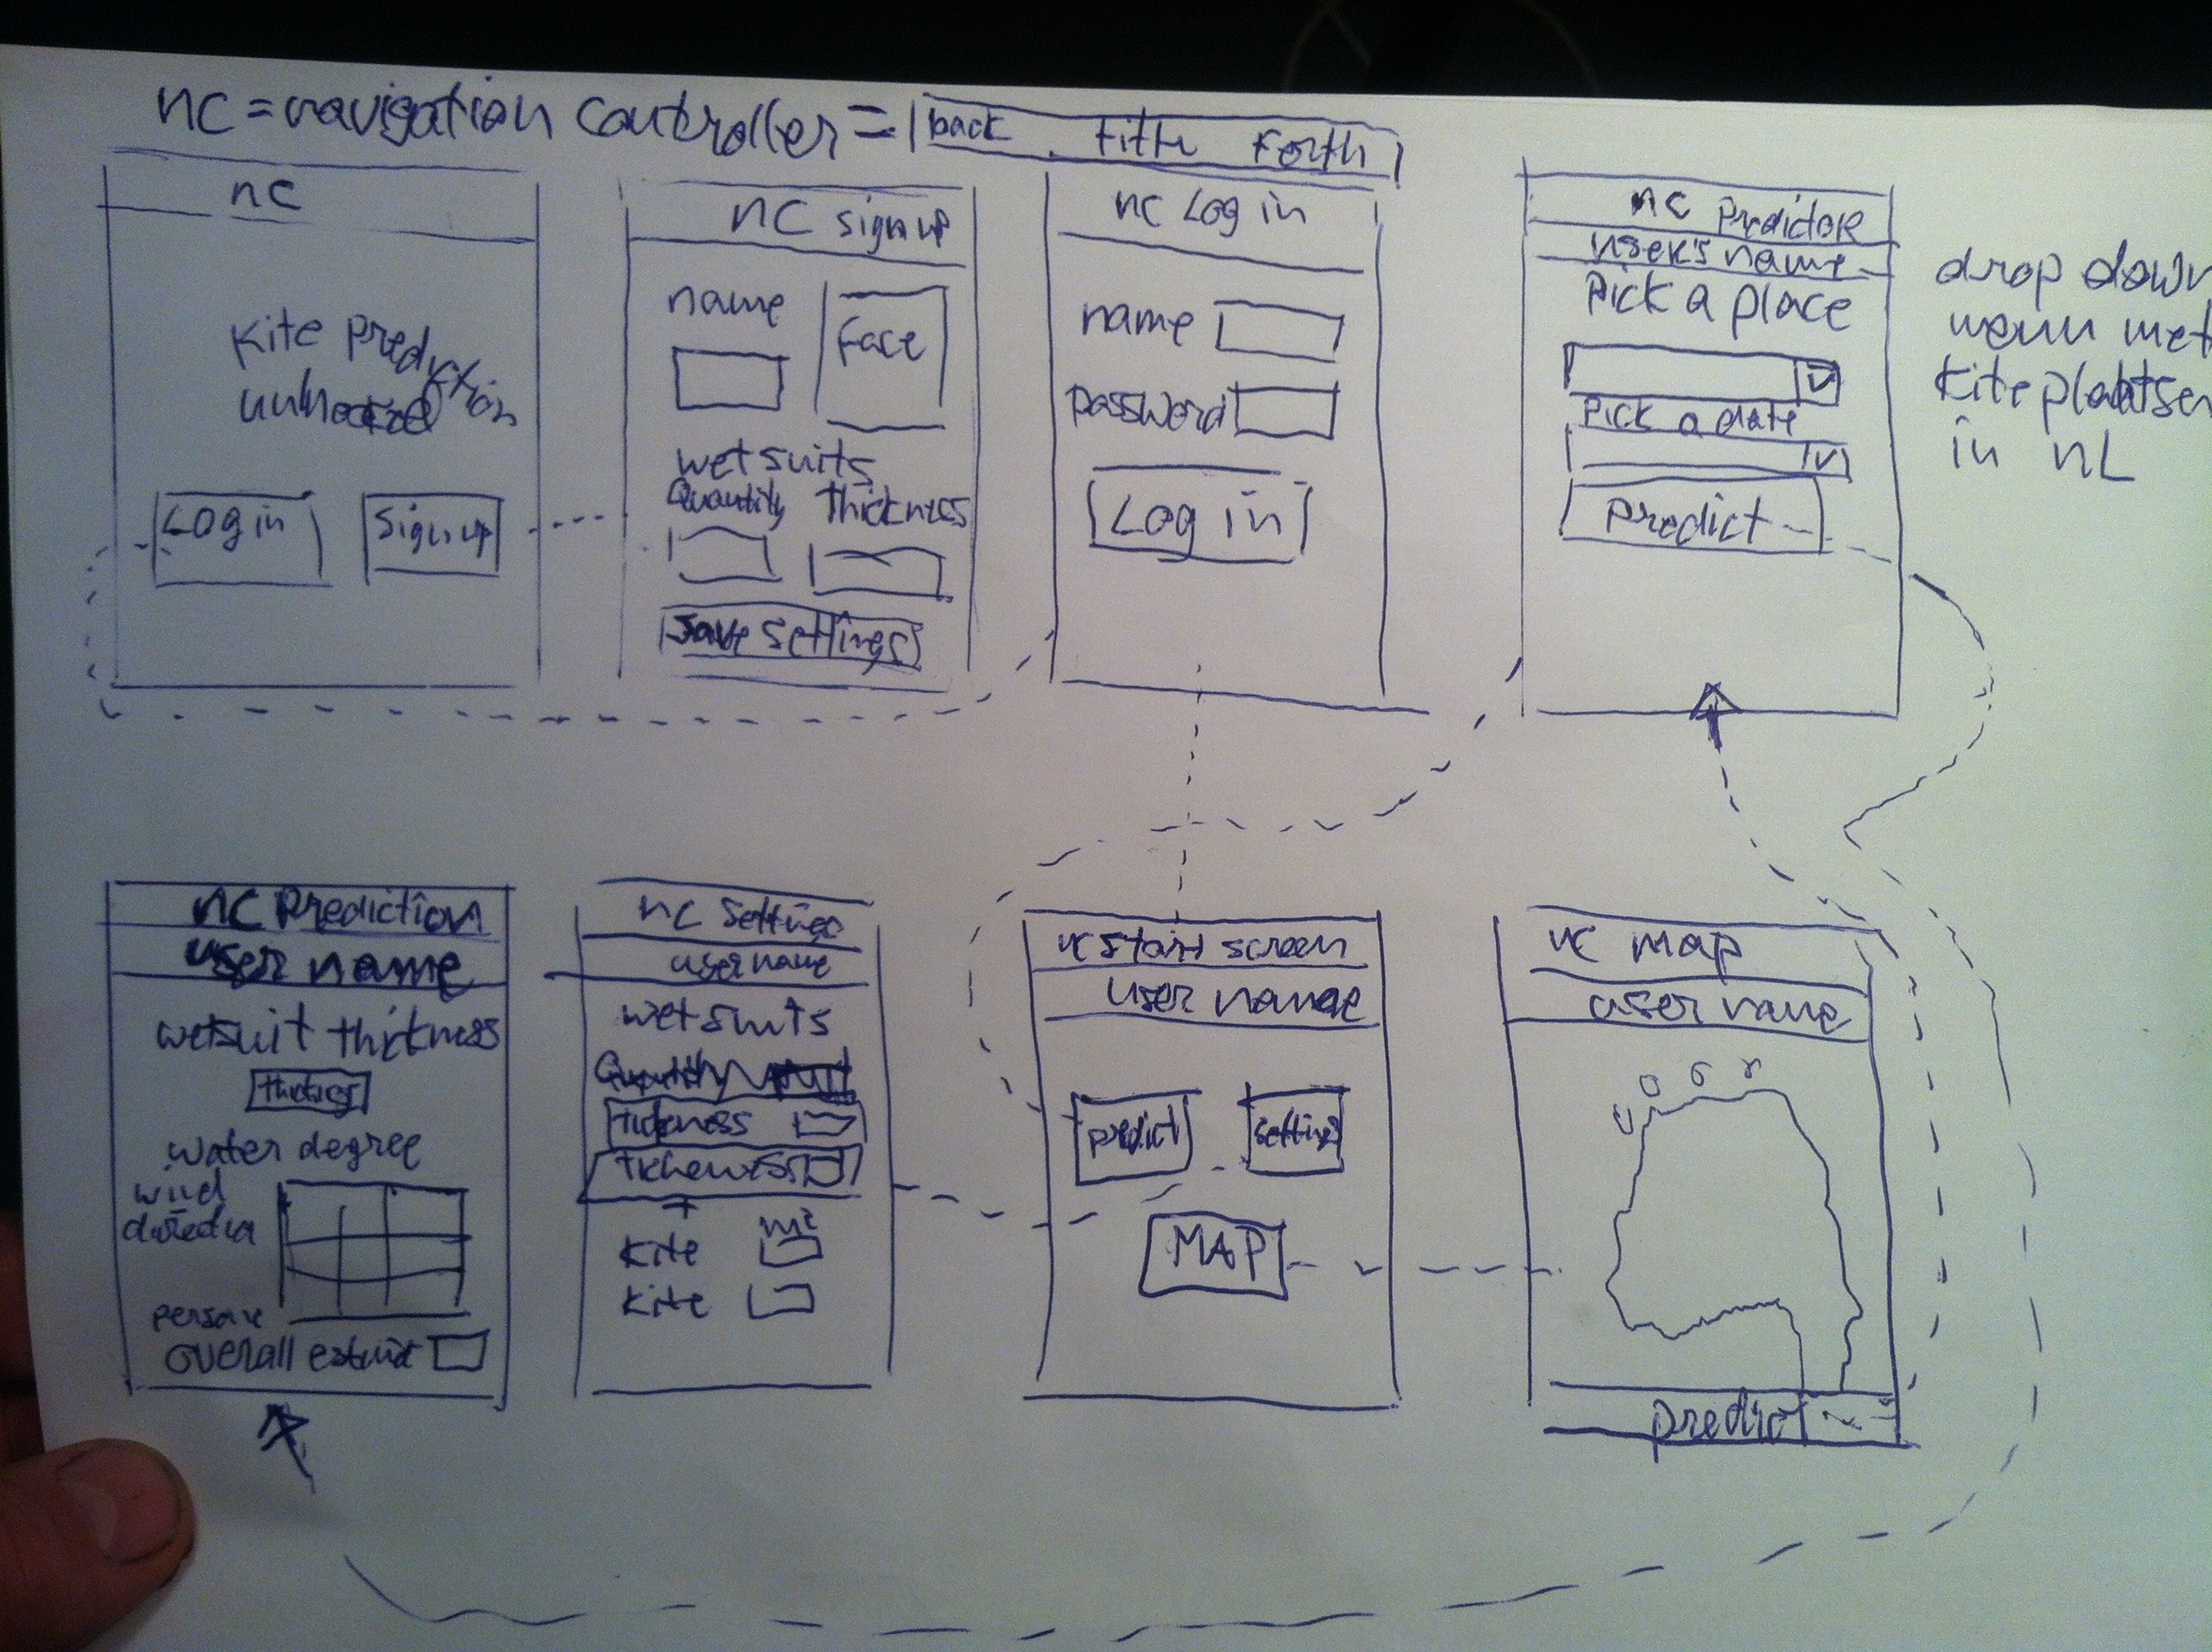 nc = navigation controller = back title Forth
nc
Kite prediction
Log in
Sign up
nc sign up
name
Face
wetsuits
Quantity thickness
Save settings
nc Log in
name
password
Log in
nc Predictor
user's name
Pick a place
Pick a date
predict
drop down
menu met
Kiteplaatsen
in NL
nc Prediction
user name
wetsuit thickness
water degree
wind
overall
nc Settings
user name
wetsuits
Quantity
tickness
Kite m²
Kite
nc start screen
user name
predict
settings
MAP
nc map
user name
predict